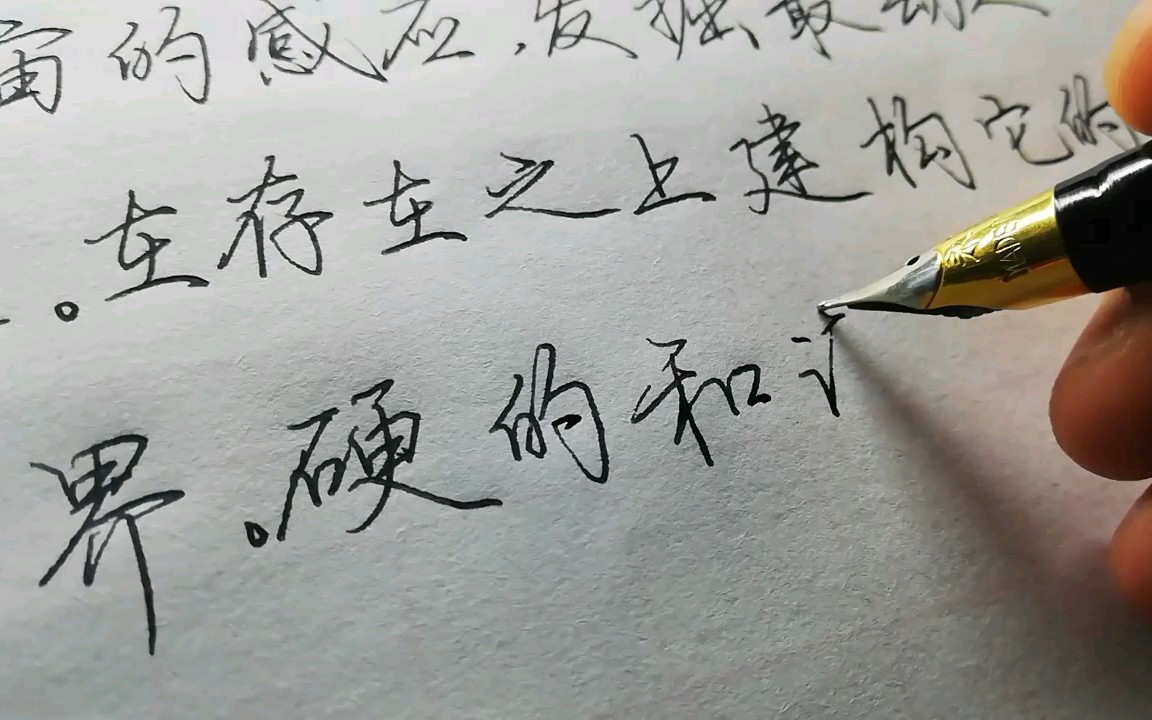 宙的感应,发掘最
。在存在之上建构它的
界。硬的和